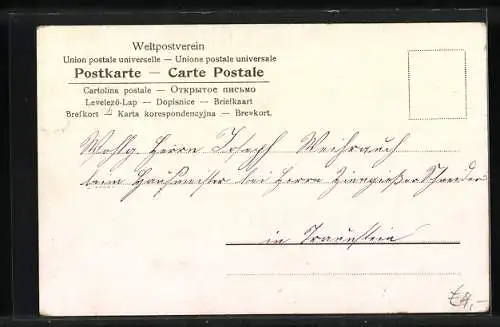 Weltpostverein
Union postale universelle — Unione postale universale
Postkarte — Carte Postale
Cartolina postale — Открытое письмо
Levelező-Lap — Dopisnice — Briefkaart
Brefkort — Karta korespondencyjna — Brevkort.
Wohlg. Herrn Joseph Weihrauch
beim Hausmeister bei Herrn Zinngießer Schneider
in Traunstein